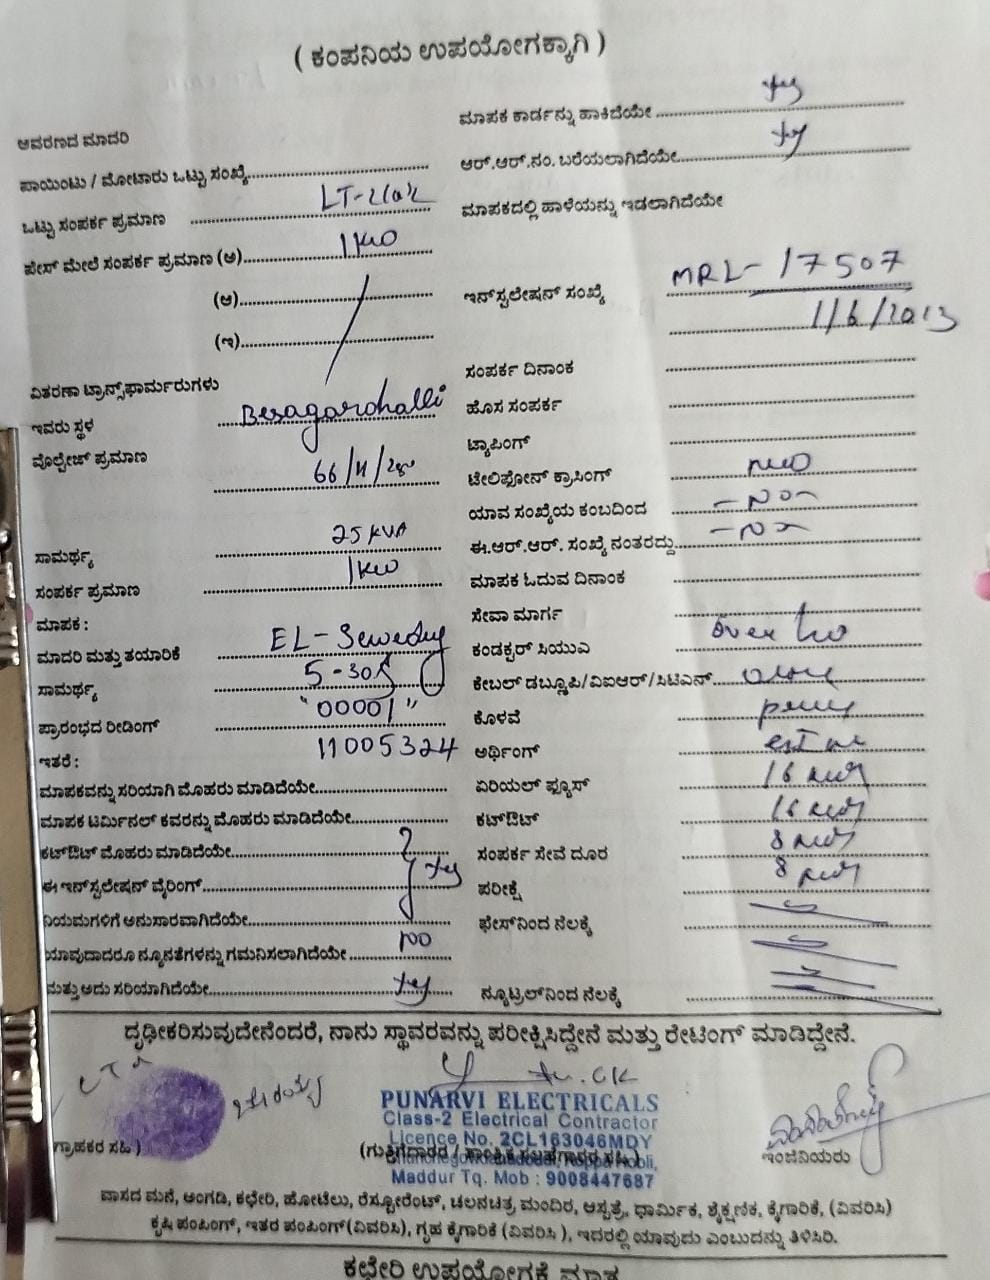 ( ಕಂಪನಿಯ ಉಪಯೋಗಕ್ಕಾಗಿ )
ಆವರಣದ ಮಾದರಿ
ಪಾಯಿಂಟು / ಮೋಟಾರು ಒಟ್ಟು ಸಂಖ್ಯೆ
ಒಟ್ಟು ಸಂಪರ್ಕ ಪ್ರಮಾಣ
ಫೇಸ್ ಮೇಲೆ ಸಂಪರ್ಕ ಪ್ರಮಾಣ (ಅ) 1 KW
(ಆ)
(ಇ)
ವಿತರಣಾ ಟ್ರಾನ್ಸ್‌ಫಾರ್ಮರುಗಳು
ಇವರು ಸ್ಥಳ Besagarahalli
ವೋಲ್ಟೇಜ್ ಪ್ರಮಾಣ 66/11/
ಸಾಮರ್ಥ್ಯ 25 KVA
ಸಂಪರ್ಕ ಪ್ರಮಾಣ 1 KW
ಮಾಪಕ :
ಮಾದರಿ ಮತ್ತು ತಯಾರಿಕೆ EL-Sewedy
ಸಾಮರ್ಥ್ಯ 5-30A
ಪ್ರಾರಂಭದ ರೀಡಿಂಗ್ "00001"
ಇತರೆ : 11005324
ಮಾಪಕವನ್ನು ಸರಿಯಾಗಿ ಮೊಹರು ಮಾಡಿದೆಯೇ
ಮಾಪಕ ಟರ್ಮಿನಲ್ ಕವರನ್ನು ಮೊಹರು ಮಾಡಿದೆಯೇ
ಕಟ್‌ಔಟ್ ಮೊಹರು ಮಾಡಿದೆಯೇ
ಈ ಇನ್‌ಸ್ಟಲೇಷನ್ ವೈರಿಂಗ್ yes
ನಿಯಮಗಳಿಗೆ ಅನುಸಾರವಾಗಿದೆಯೇ
ಯಾವುದಾದರೂ ನ್ಯೂನತೆಗಳನ್ನು ಗಮನಿಸಲಾಗಿದೆಯೇ no
ಮತ್ತು ಅದು ಸರಿಯಾಗಿದೆಯೇ yes
ಮಾಪಕ ಕಾರ್ಡನ್ನು ಹಾಕಿದೆಯೇ yes
ಆರ್.ಆರ್.ನಂ. ಬರೆಯಲಾಗಿದೆಯೇ yes
ಮಾಪಕದಲ್ಲಿ ಹಾಳೆಯನ್ನು ಇಡಲಾಗಿದೆಯೇ
ಇನ್‌ಸ್ಟಲೇಷನ್ ಸಂಖ್ಯೆ MRL-17507
1/6/2013
ಸಂಪರ್ಕ ದಿನಾಂಕ
ಹೊಸ ಸಂಪರ್ಕ
ಟ್ಯಾಪಿಂಗ್
ಟೆಲಿಫೋನ್ ಕ್ರಾಸಿಂಗ್
ಯಾವ ಸಂಖ್ಯೆಯ ಕಂಬದಿಂದ -NO-
ಈ.ಆರ್.ಆರ್. ಸಂಖ್ಯೆ ನಂತರದ್ದು -NO-
ಮಾಪಕ ಓದುವ ದಿನಾಂಕ
ಸೇವಾ ಮಾರ್ಗ
ಕಂಡಕ್ಟರ್ ಸಿಯುಎ
ಕೇಬಲ್ ಡಬ್ಲ್ಯೂಪಿ/ವಿಐಆರ್/ಸಿಟಿಎನ್
ಕೊಳವೆ
ಅರ್ಥಿಂಗ್
ಏರಿಯಲ್ ಫ್ಯೂಸ್ 16
ಕಟ್‌ಔಟ್ 16
ಸಂಪರ್ಕ ಸೇವೆ ದೂರ 8
ಪರೀಕ್ಷೆ 8
ಫೇಸ್‌ನಿಂದ ನೆಲಕ್ಕೆ
ನ್ಯೂಟ್ರಲ್‌ನಿಂದ ನೆಲಕ್ಕೆ
ದೃಢೀಕರಿಸುವುದೇನೆಂದರೆ, ನಾನು ಸ್ಥಾವರವನ್ನು ಪರೀಕ್ಷಿಸಿದ್ದೇನೆ ಮತ್ತು ರೇಟಿಂಗ್ ಮಾಡಿದ್ದೇನೆ.
PUNARVI ELECTRICALS
Class-2 Electrical Contractor
Licence No. 2CL163046MDY
Maddur Tq. Mob : 9008447687
ಗ್ರಾಹಕರ ಸಹಿ )
ಇಂಜಿನಿಯರು
ವಾಸದ ಮನೆ, ಅಂಗಡಿ, ಕಛೇರಿ, ಹೋಟೆಲು, ರೆಸ್ಟೋರೆಂಟ್, ಚಲನಚಿತ್ರ ಮಂದಿರ, ಆಸ್ಪತ್ರೆ, ಧಾರ್ಮಿಕ, ಶೈಕ್ಷಣಿಕ, ಕೈಗಾರಿಕೆ, (ವಿವರಿಸಿ)
ಕೃಷಿ ಪಂಪಿಂಗ್, ಇತರ ಪಂಪಿಂಗ್(ವಿವರಿಸಿ), ಗೃಹ ಕೈಗಾರಿಕೆ (ವಿವರಿಸಿ ), ಇದರಲ್ಲಿ ಯಾವುದು ಎಂಬುದನ್ನು ತಿಳಿಸಿರಿ.
ಕಛೇರಿ ಉಪಯೋಗಕ್ಕೆ ಮಾತ್ರ